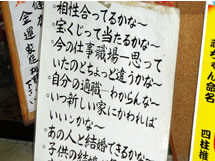 相性合ってるかな～
宝くじって当たるかな～
今の仕事職場―思って
いたのとちょっと違うかな～
自分の適職 わからんな～
いつ新しい家にかわれば
いいンかな～
あの人と結婚できるかな～
子供の結婚
赤ちゃん命名
四柱推